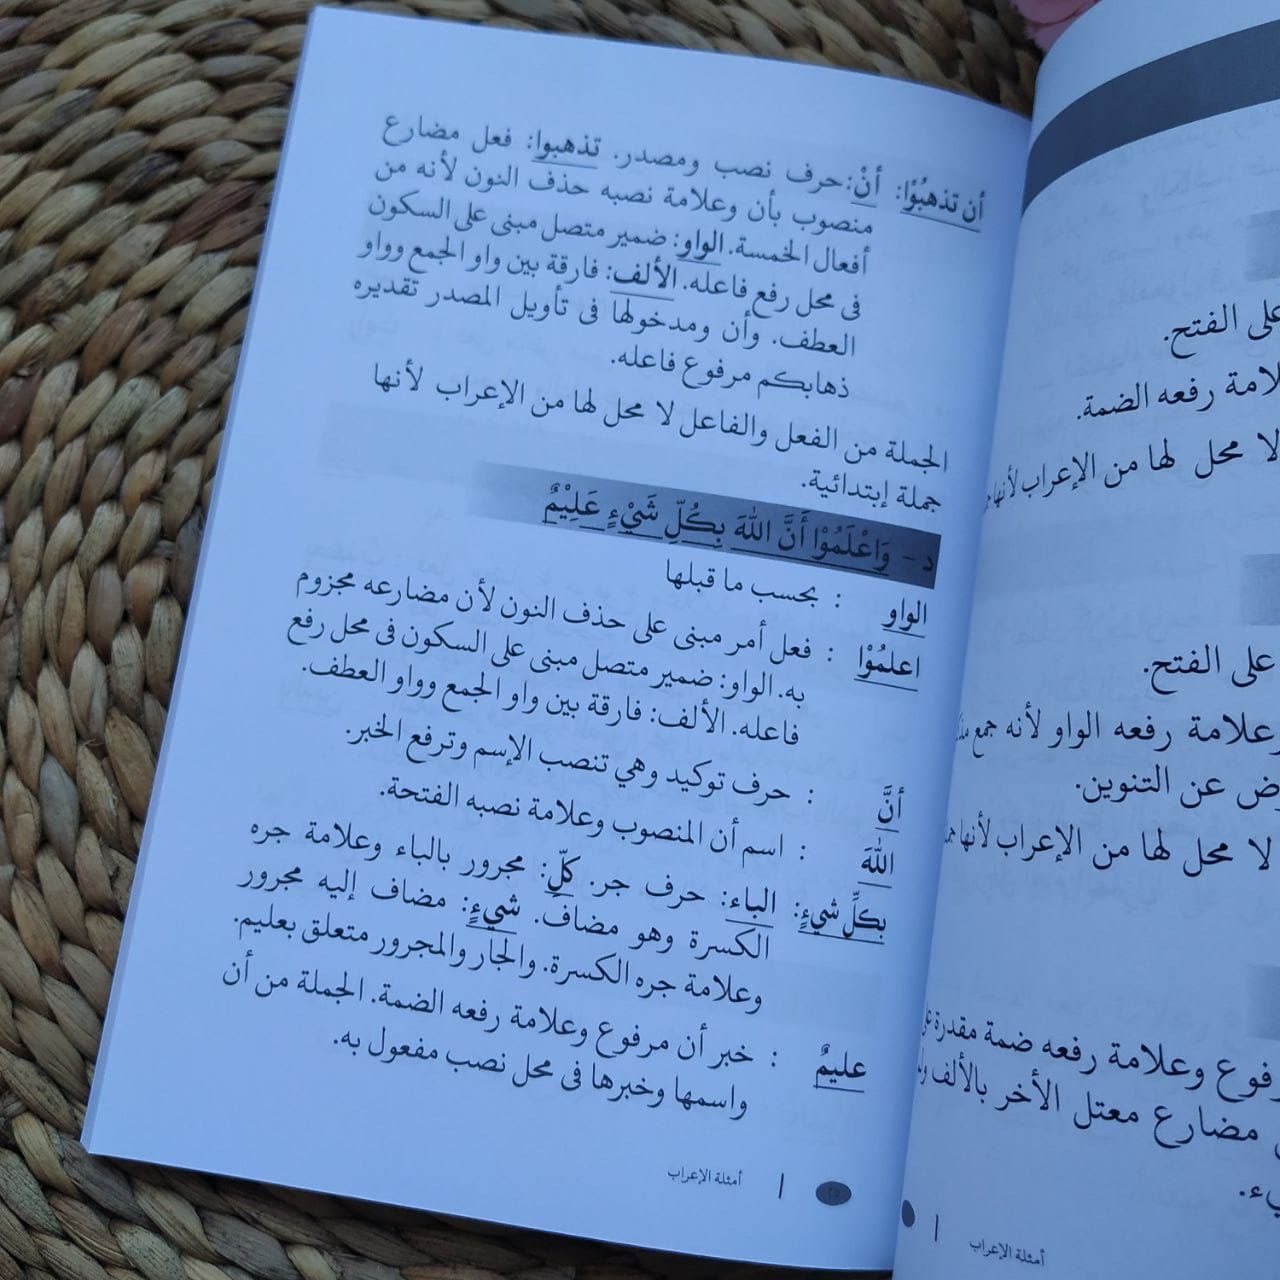 أن تذهبُوْا: أنْ: حرف نصب ومصدر. تذهبوا: فعل مضارع
منصوب بأن وعلامة نصبه حذف النون لأنه من
أفعال الخمسة. الواو: ضمير متصل مبنى على السكون
فى محل رفع فاعله. الألف: فارقة بين واو الجمع وواو
العطف. وأن ومدخولها فى تأويل المصدر تقديره
ذهابكم مرفوع فاعله.
الجملة من الفعل والفاعل لا محل لها من الإعراب لأنها
جملة إبتدائية.
د - وَاعْلَمُوْا أَنَّ اللهَ بِكُلِّ شَيْءٍ عَلِيْمٌ
الواو : بحسب ما قبلها
اعلمُوْا : فعل أمر مبنى على حذف النون لأن مضارعه مجزوم
به. الواو: ضمير متصل مبنى على السكون فى محل رفع
فاعله. الألف: فارقة بين واو الجمع وواو العطف.
أنَّ : حرف توكيد وهي تنصب الإسم وترفع الخبر.
اللهَ : اسم أن المنصوب وعلامة نصبه الفتحة.
بكلِّ شيءٍ: الباء: حرف جر. كلِّ: مجرور بالباء وعلامة جره
الكسرة وهو مضاف. شيءٍ: مضاف إليه مجرور
وعلامة جره الكسرة. والجار والمجرور متعلق بعليم.
عليمٌ : خبر أن مرفوع وعلامة رفعه الضمة. الجملة من أن
واسمها وخبرها فى محل نصب مفعول به.
| أمثلة الإعراب
على الفتح.
رفعه الضمة.
لا محل لها من الإعراب لأنها
على الفتح.
وعلامة رفعه الواو لأنه جمع
عن التنوين.
لا محل لها من الإعراب لأنها
وعلامة رفعه ضمة مقدرة
مضارع معتل الأخر بالألف
| أمثلة الإعراب